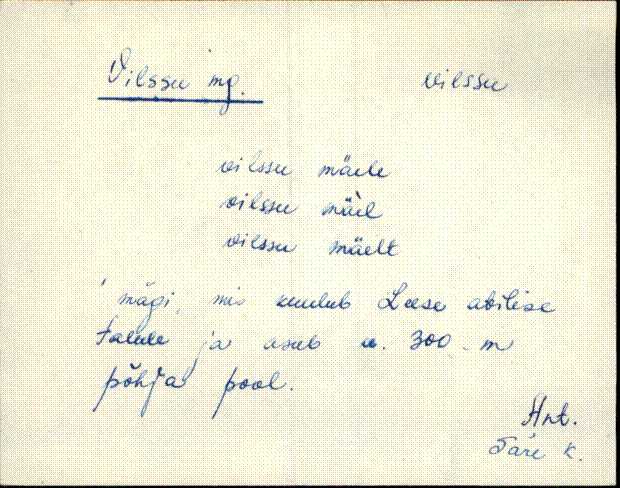 Vilssu mg. vilssu
vilssu mäele
vilssu mäel
vilssu mäelt
mägi, mis kuulub Leese abilise
talule ja asub u. 300-m
põhja pool.
Hnt.
Täre k.